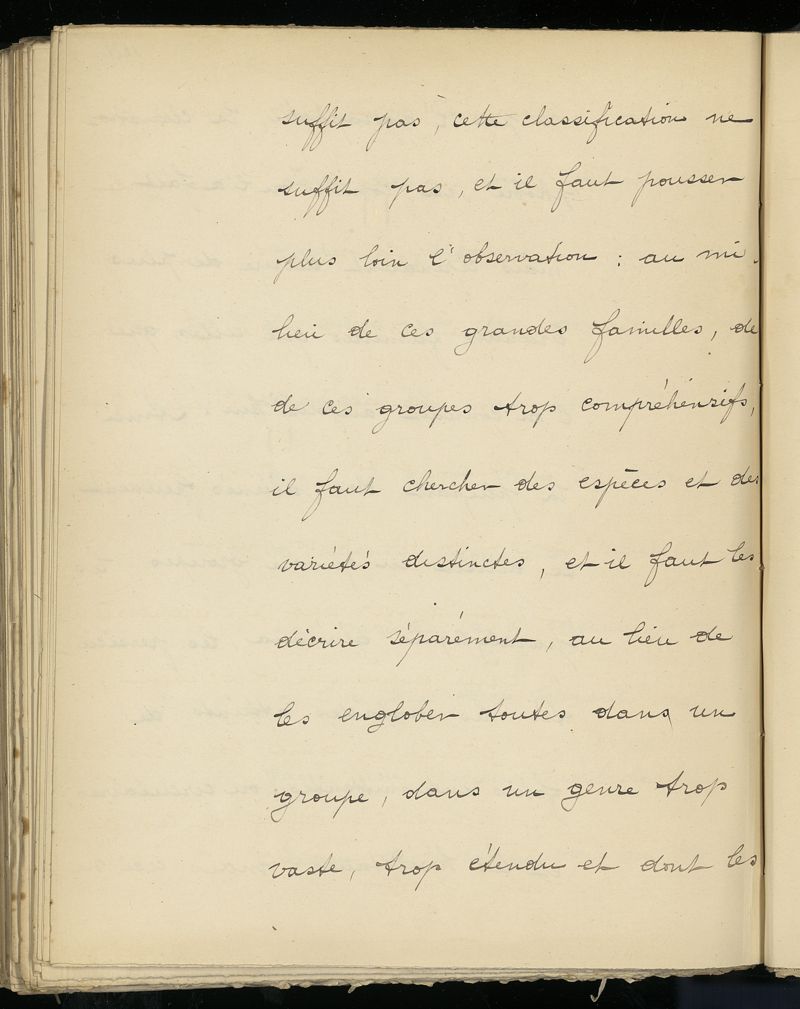 suffit pas, cette classification ne
suffit pas, et il faut pousser
plus loin l'observation : au mi-
lieu de ces grandes familles, de
de ces groupes trop compréhensifs,
il faut chercher des espèces et des
variétés distinctes, et il faut les
décrire séparément, au lieu de
les englober toutes dans un
groupe, dans un genre trop
vaste, trop étendu et dont les